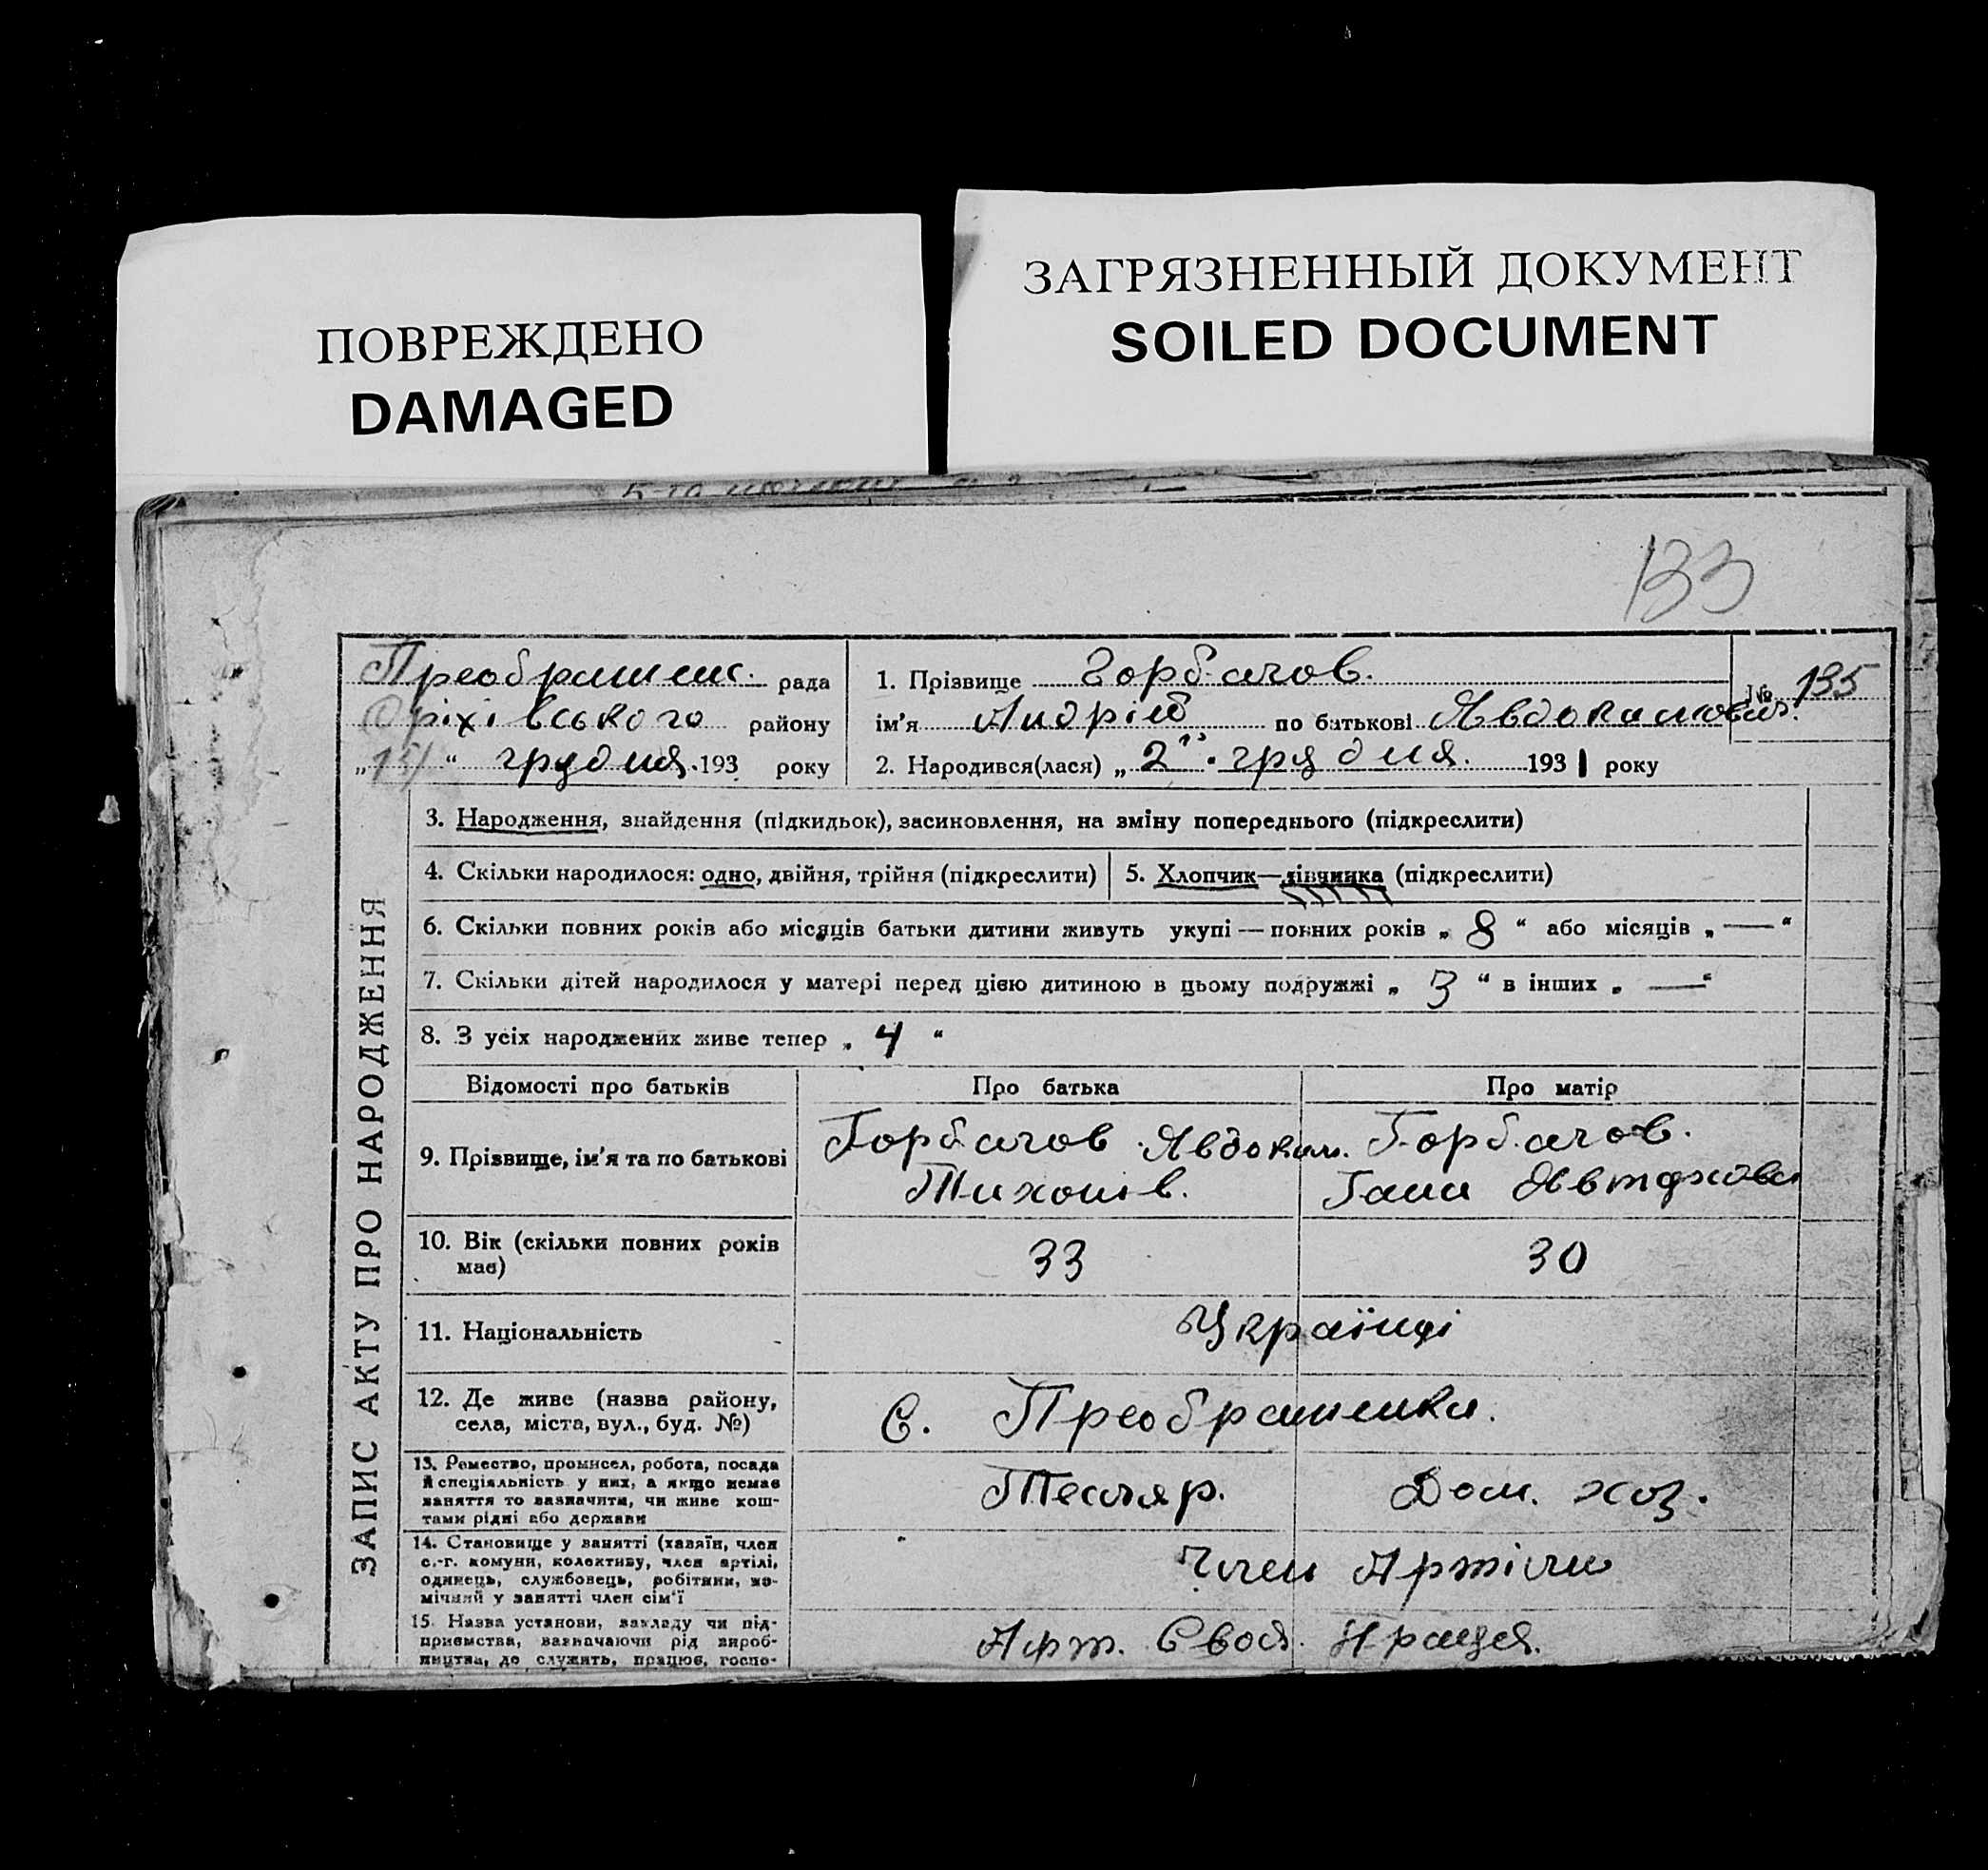 ПОВРЕЖДЕНО
DAMAGED
ЗАГРЯЗНЕННЫЙ ДОКУМЕНТ
SOILED DOCUMENT
133
Преображенс. рада
Оріхівського району
„ “ грудня 193 року
1. Прізвище Горбачов.
ім’я Андрій по батькові Явдокимович.
№ 135
2. Народився(лася) „2“ грудня. 1931 року
ЗАПИС АКТУ ПРО НАРОДЖЕННЯ
3. Народження, знайдення (підкидьок), засиновлення, на зміну попереднього (підкреслити)
4. Скільки народилося: одно, двійня, трійня (підкреслити)
5. Хлопчик—дівчинка (підкреслити)
6. Скільки повних років або місяців батьки дитини живуть укупі — повних років „ 8 “ або місяців „ — “
7. Скільки дітей народилося у матері перед цією дитиною в цьому подружжі „ 3 “ в інших „ — “
8. З усіх народжених живе тепер „ 4 “
Відомості про батьків Про батька Про матір
9. Прізвище, ім’я та по батькові
Горбачов Явдоким.
Тихонів.
Горбачов.
Гана
10. Вік (скільки повних років має) 33 30
11. Національність Українці
12. Де живе (назва району,
села, міста, вул., буд. №)
С. Преображенка.
13. Ремество, промисел, робота, посада
й спеціяльність у них, а якщо немає
заняття то зазначити, чи живе кош-
тами рідні або держави
Тесляр. Дом. хоз.
14. Становище у занятті (хазяїн, член
с.-г. комуни, колективу, член артілі,
одинець, службовець, робітник, по-
мічний у занятті член сім’ї
Член Артіли
15. Назва установи, закладу чи під-
приємства, зазначаючи рід вироб-
ництва, де служить, працює, госпо-
Арт. Своя Праця.